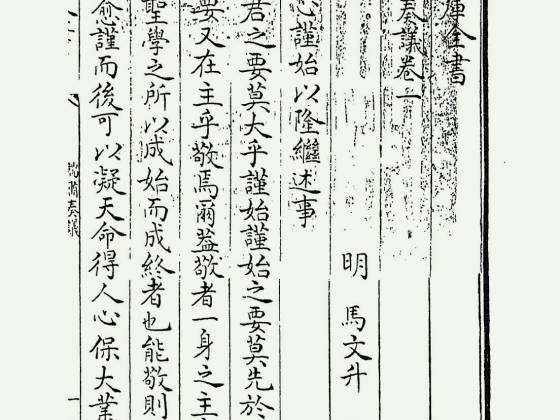 庫全書
奏議卷一
明 馬文升
心謹始以隆繼述事
君之要莫大乎謹始謹始之要莫先於
要又在主乎敬焉爾葢敬者一身之主
聖學之所以成始而成終者也能敬則
愈謹而後可以凝天命得人心保大業
端肅奏議
一